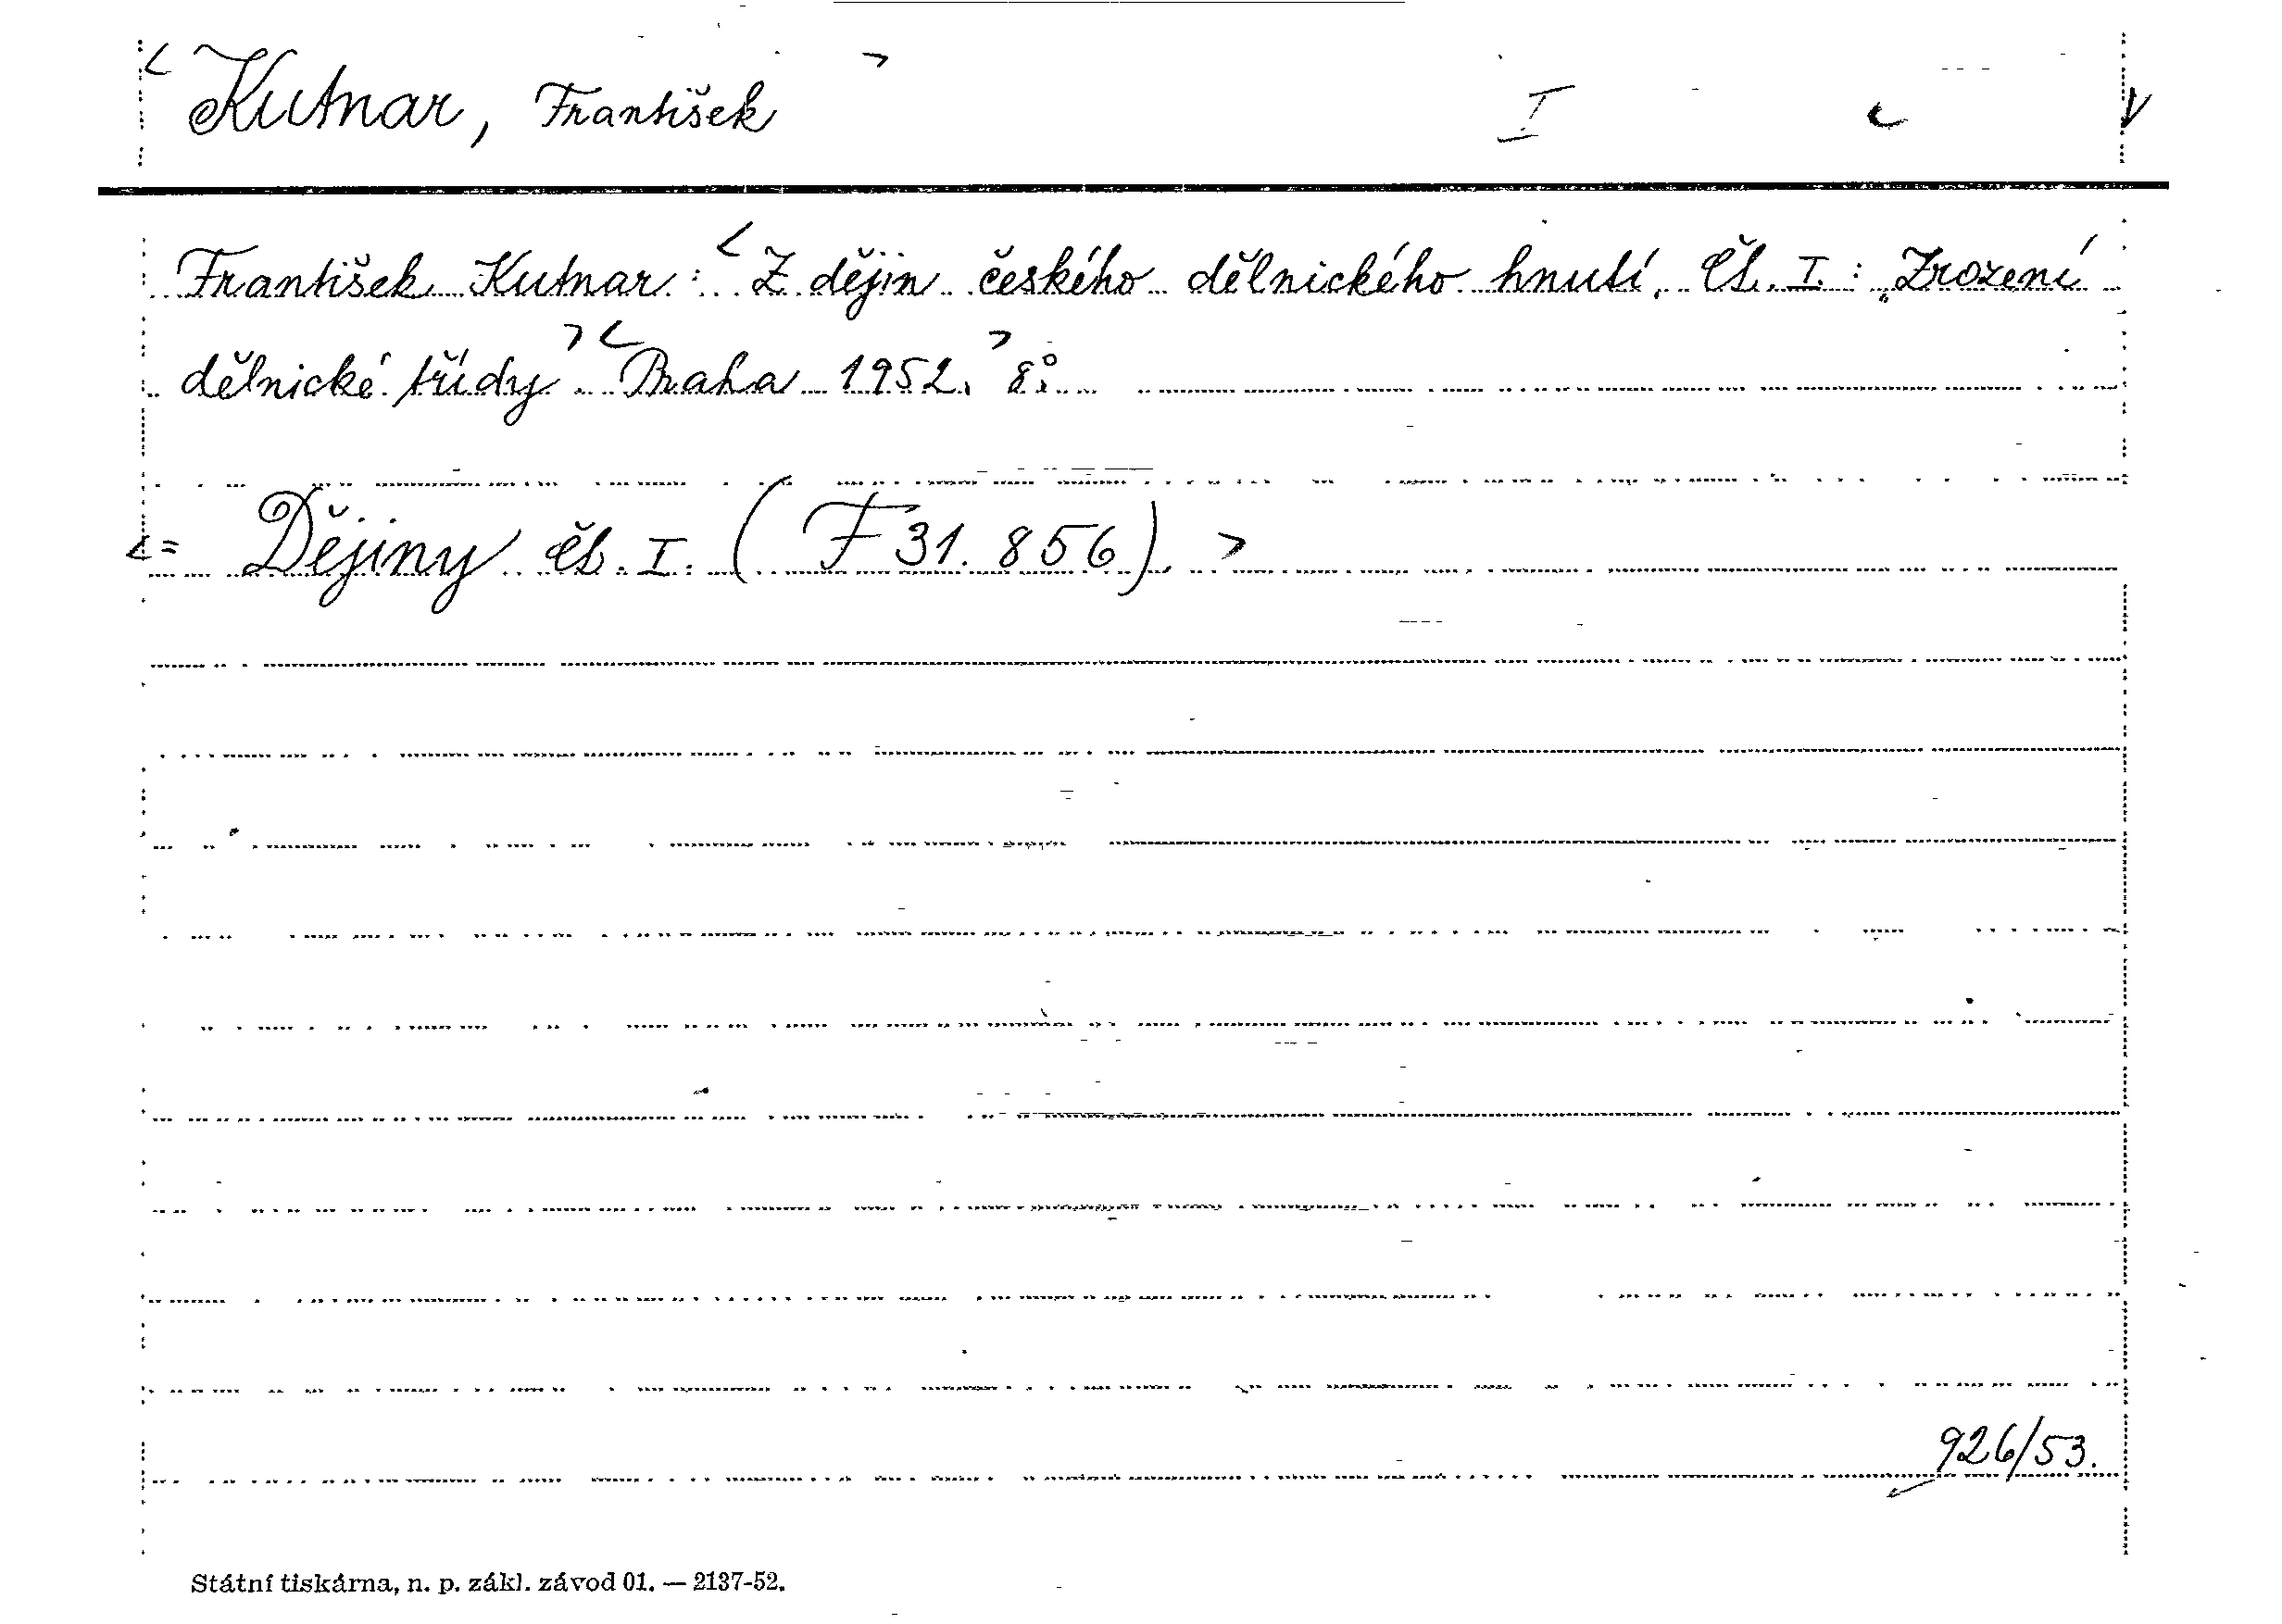 < Kutnar, František > I c V
František Kutnar: < Z dějin českého dělnického hnutí. Čs. I.: „Zrození
dělnické třídy > < Praha 1952. > 8°.
< = Dějiny čs. I. (F 31.856). >
926/53.
Státní tiskárna, n. p. zákl. závod 01. — 2137-52.